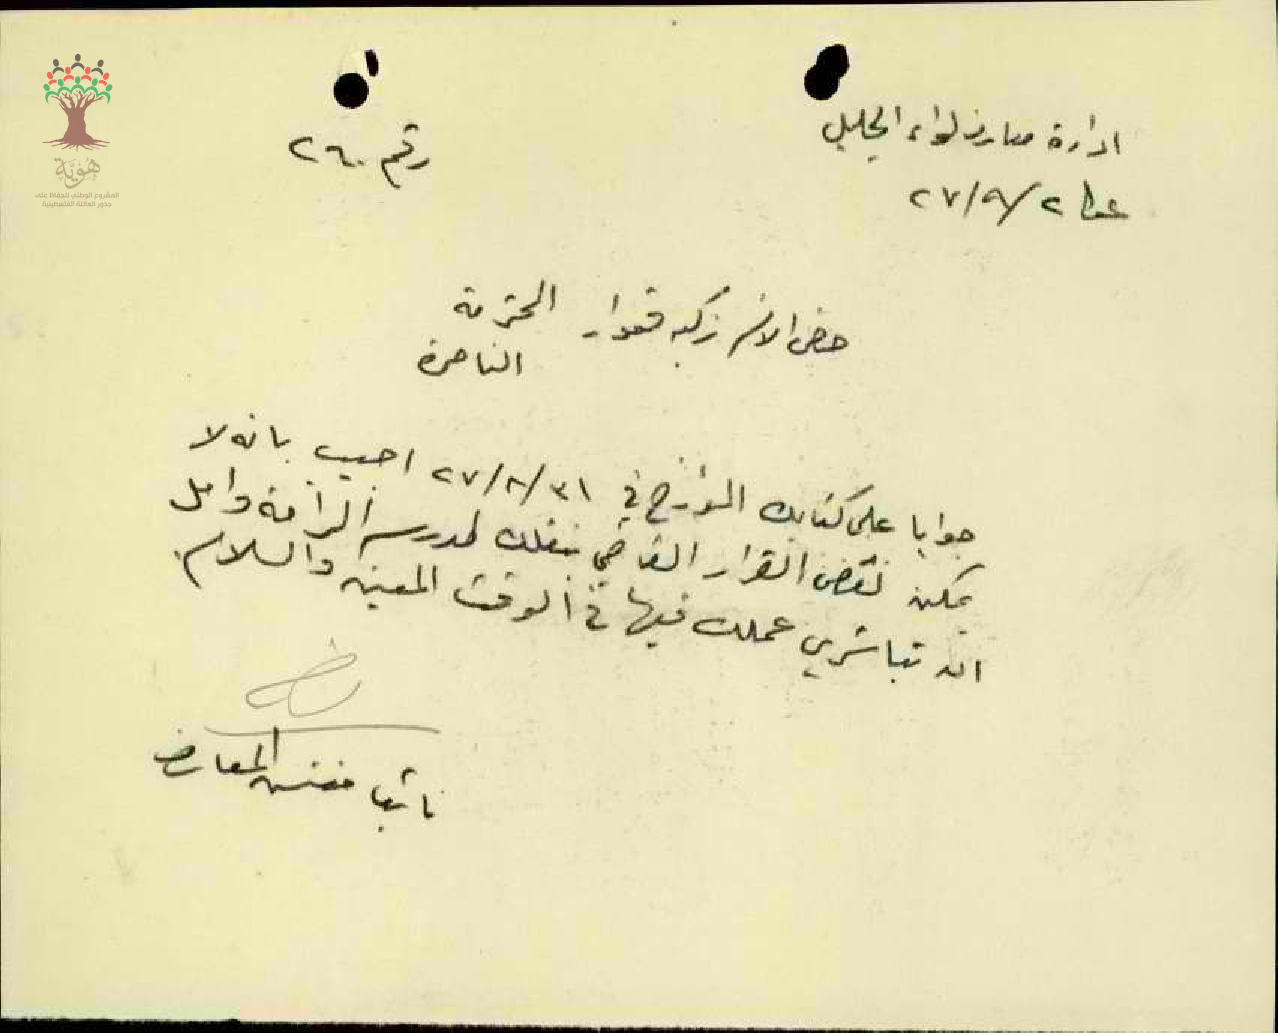 هُوِيَّة
المشروع الوطني للحفاظ على
جذور العائلة الفلسطينية
ادارة معارف لواء الجليل
رقم ٢٦٠
عكا ٢/٩/٢٧
حضرة الانسه زكيه قعوار المحترمة
الناصرة
جوابا على كتابك المؤرخ في ٣١/٨/٢٧ اجيب بانه لا
يمكن نقض القرار القاضي بنقلك لمدرسة الرامة وامل
ان تباشري عملك فيها في الوقت المعين والسلام
نائب مفتش المعارف